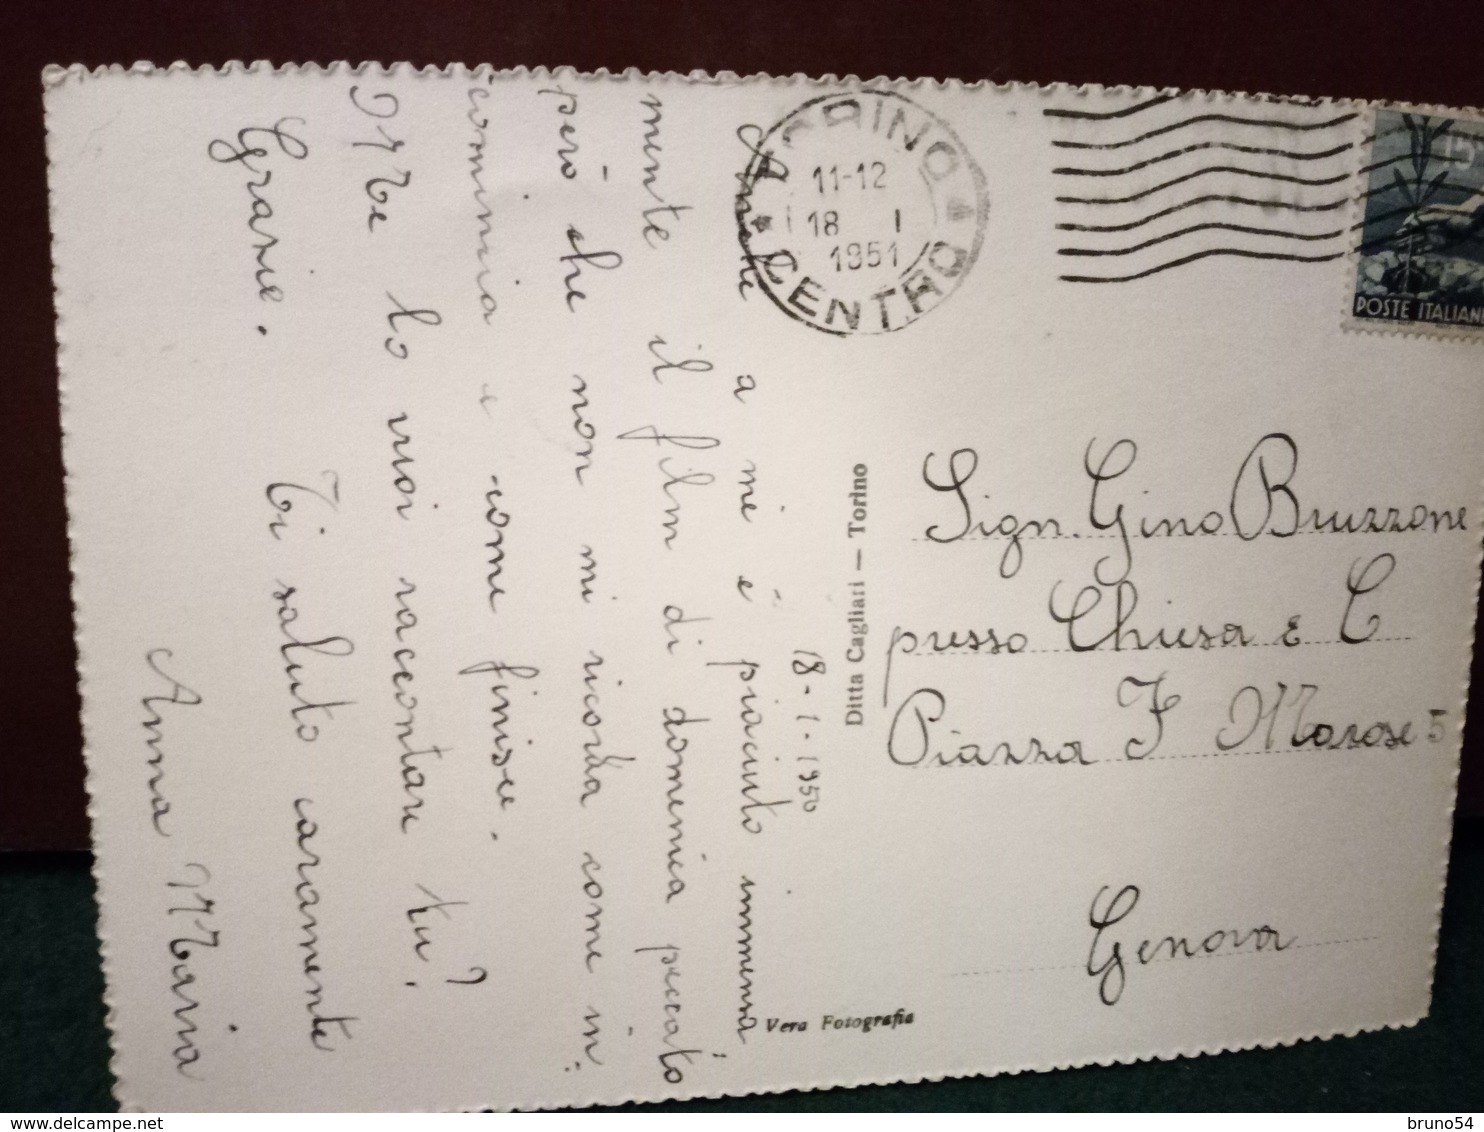 18-1-1950
Anche a me è piaciuto immensa
mente il film di domenica peccato
però che non mi ricorda come in:
comincia e come finisce.
Me lo vuoi raccontare tu?
Grazie. Ti saluto caramente
Anna Maria
TORINO
11-12
18 I
1951
CENTRO
15
POSTE ITALIANE
Ditta Cagliari — Torino
Vera Fotografia
Sign. Gino Bruzzone
presso Chiesa e C
Piazza F Marose 5
Genova
delcampe.net
bruno54